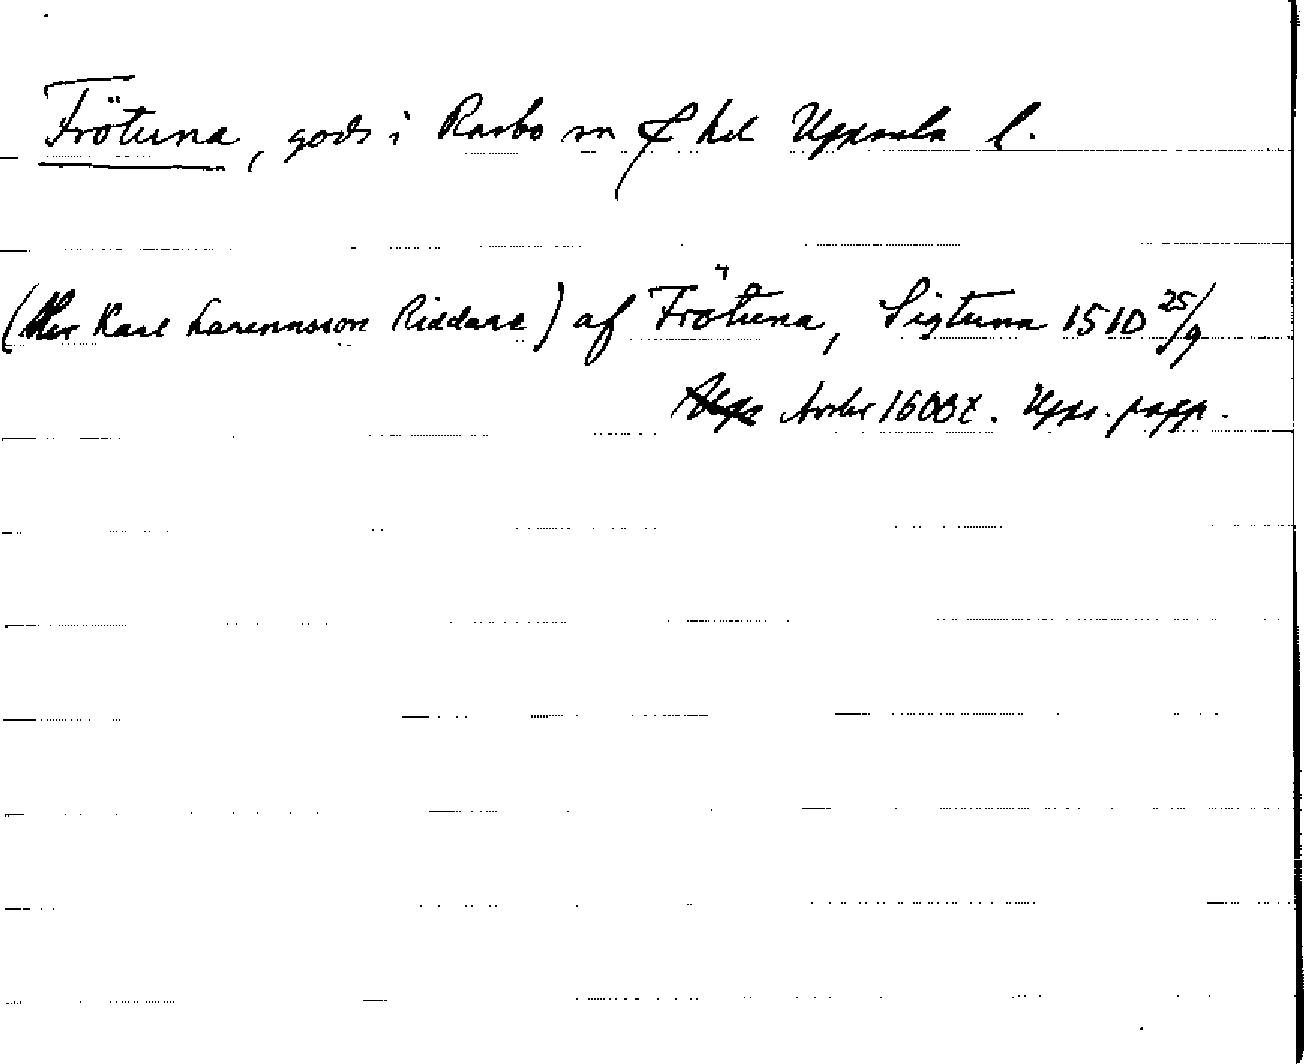 Frötuna, gods i Rasbo sn & hd Uppsala l.
(Her Karl Larennsson Riddare) af Frötuna, Sigtuna 1510 25/9
Avskr 1600t. Upps. papp.